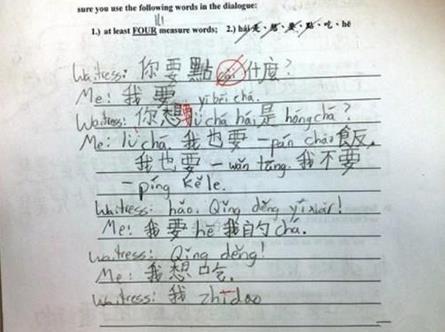 sure you use the following words in the dialogue:
1.) at least FOUR measure words; 2.) hái是、想、要、點、吃、hē
Waitress: 你要點什麼?
Me: 我要 yì bēi chá.
Waitress: 你想要lǜ chá hái是 hóng chá?
Me: lǜ chá. 我也要一pán chǎo飯.
我也要一wǎn tāng. 我不要
一píng kělè.
Waitress: hǎo. Qǐng děng yíxiàr!
Me: 我要 hē 我自的 chá.
Waitress: Qǐng děng!
Me: 我想吃.
Waitress: 我 zhīdao